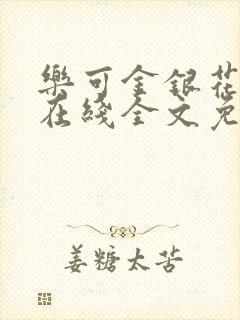 樂可金銀花
在綫全文免
姜糖太苦